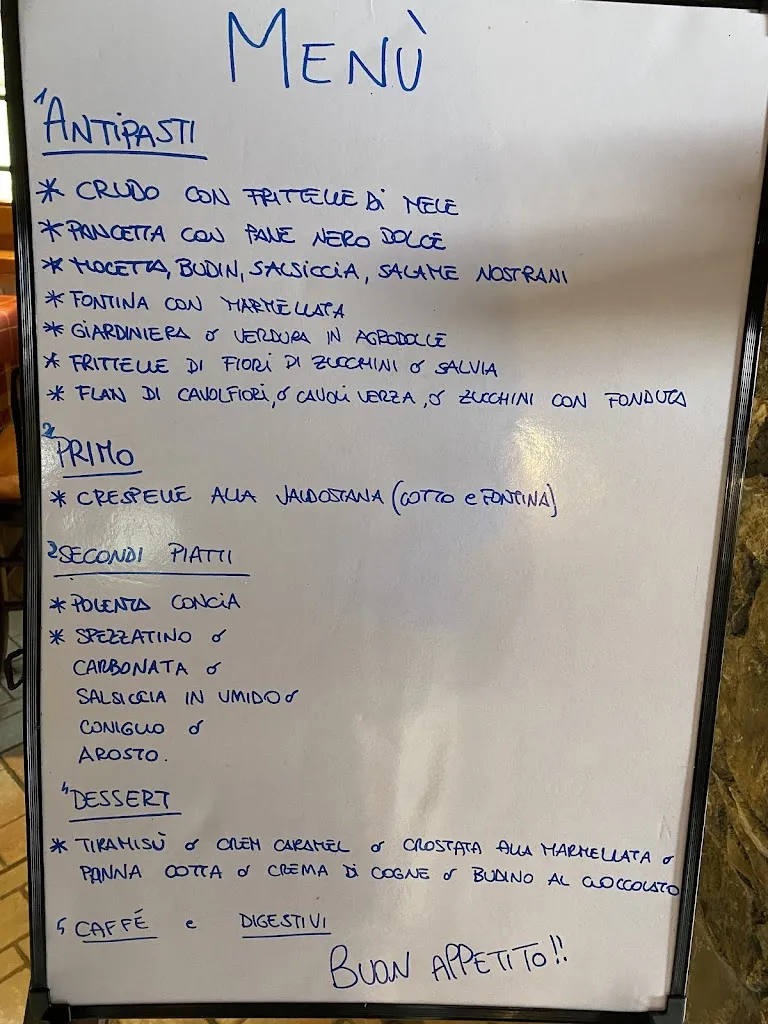 MENÙ
1 ANTIPASTI
* CRUDO CON FRITTELLE DI MELE
* PANCETTA CON PANE NERO DOLCE
* MOCETTA, BUDIN, SALSICCIA, SALAME NOSTRANI
* FONTINA CON MARMELLATA
* GIARDINIERA o VERDURA IN AGRODOLCE
* FRITTELLE DI FIORI DI ZUCCHINI o SALVIA
* FLAN DI CAVOLFIORI, o CAVOLI VERZA, o ZUCCHINI CON FONDUTA
2 PRIMO
* CRESPELLE ALLA VALDOSTANA (COTTO e FONTINA)
2 SECONDI PIATTI
* POLENTA CONCIA
* SPEZZATINO o
CARBONATA o
SALSICCIA IN UMIDO o
CONIGLIO o
AROSTO.
4 DESSERT
* TIRAMISÙ o CREM CARAMEL o CROSTATA ALLA MARMELLATA o
PANNA COTTA o CREMA DI COGNE o BUDINO AL CIOCCOLATO
5 CAFFÉ e DIGESTIVI
BUON APPETITO!!